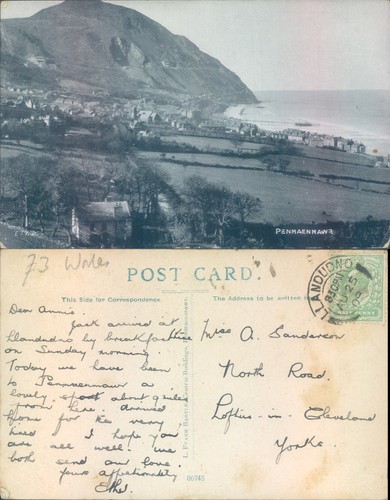 PENMAENMAWR
73 Wales
POST CARD.
This Side for Correspondence.
The Address to be written here
LLANDUDNO
Dear Annie
Jack arrived at
Llandudno by breakfast time
on Sunday morning.
Today we have been
to Penmaenmawr a
lovely spot about 9 miles
from here. drived
from for the very
I hope you
are all well. we
both send our love.
Yours affectionately
Ethel
Miss A. Sanderson
North Road.
Loftus-in-Cleveland
Yorks.
HALFPENNY
06745